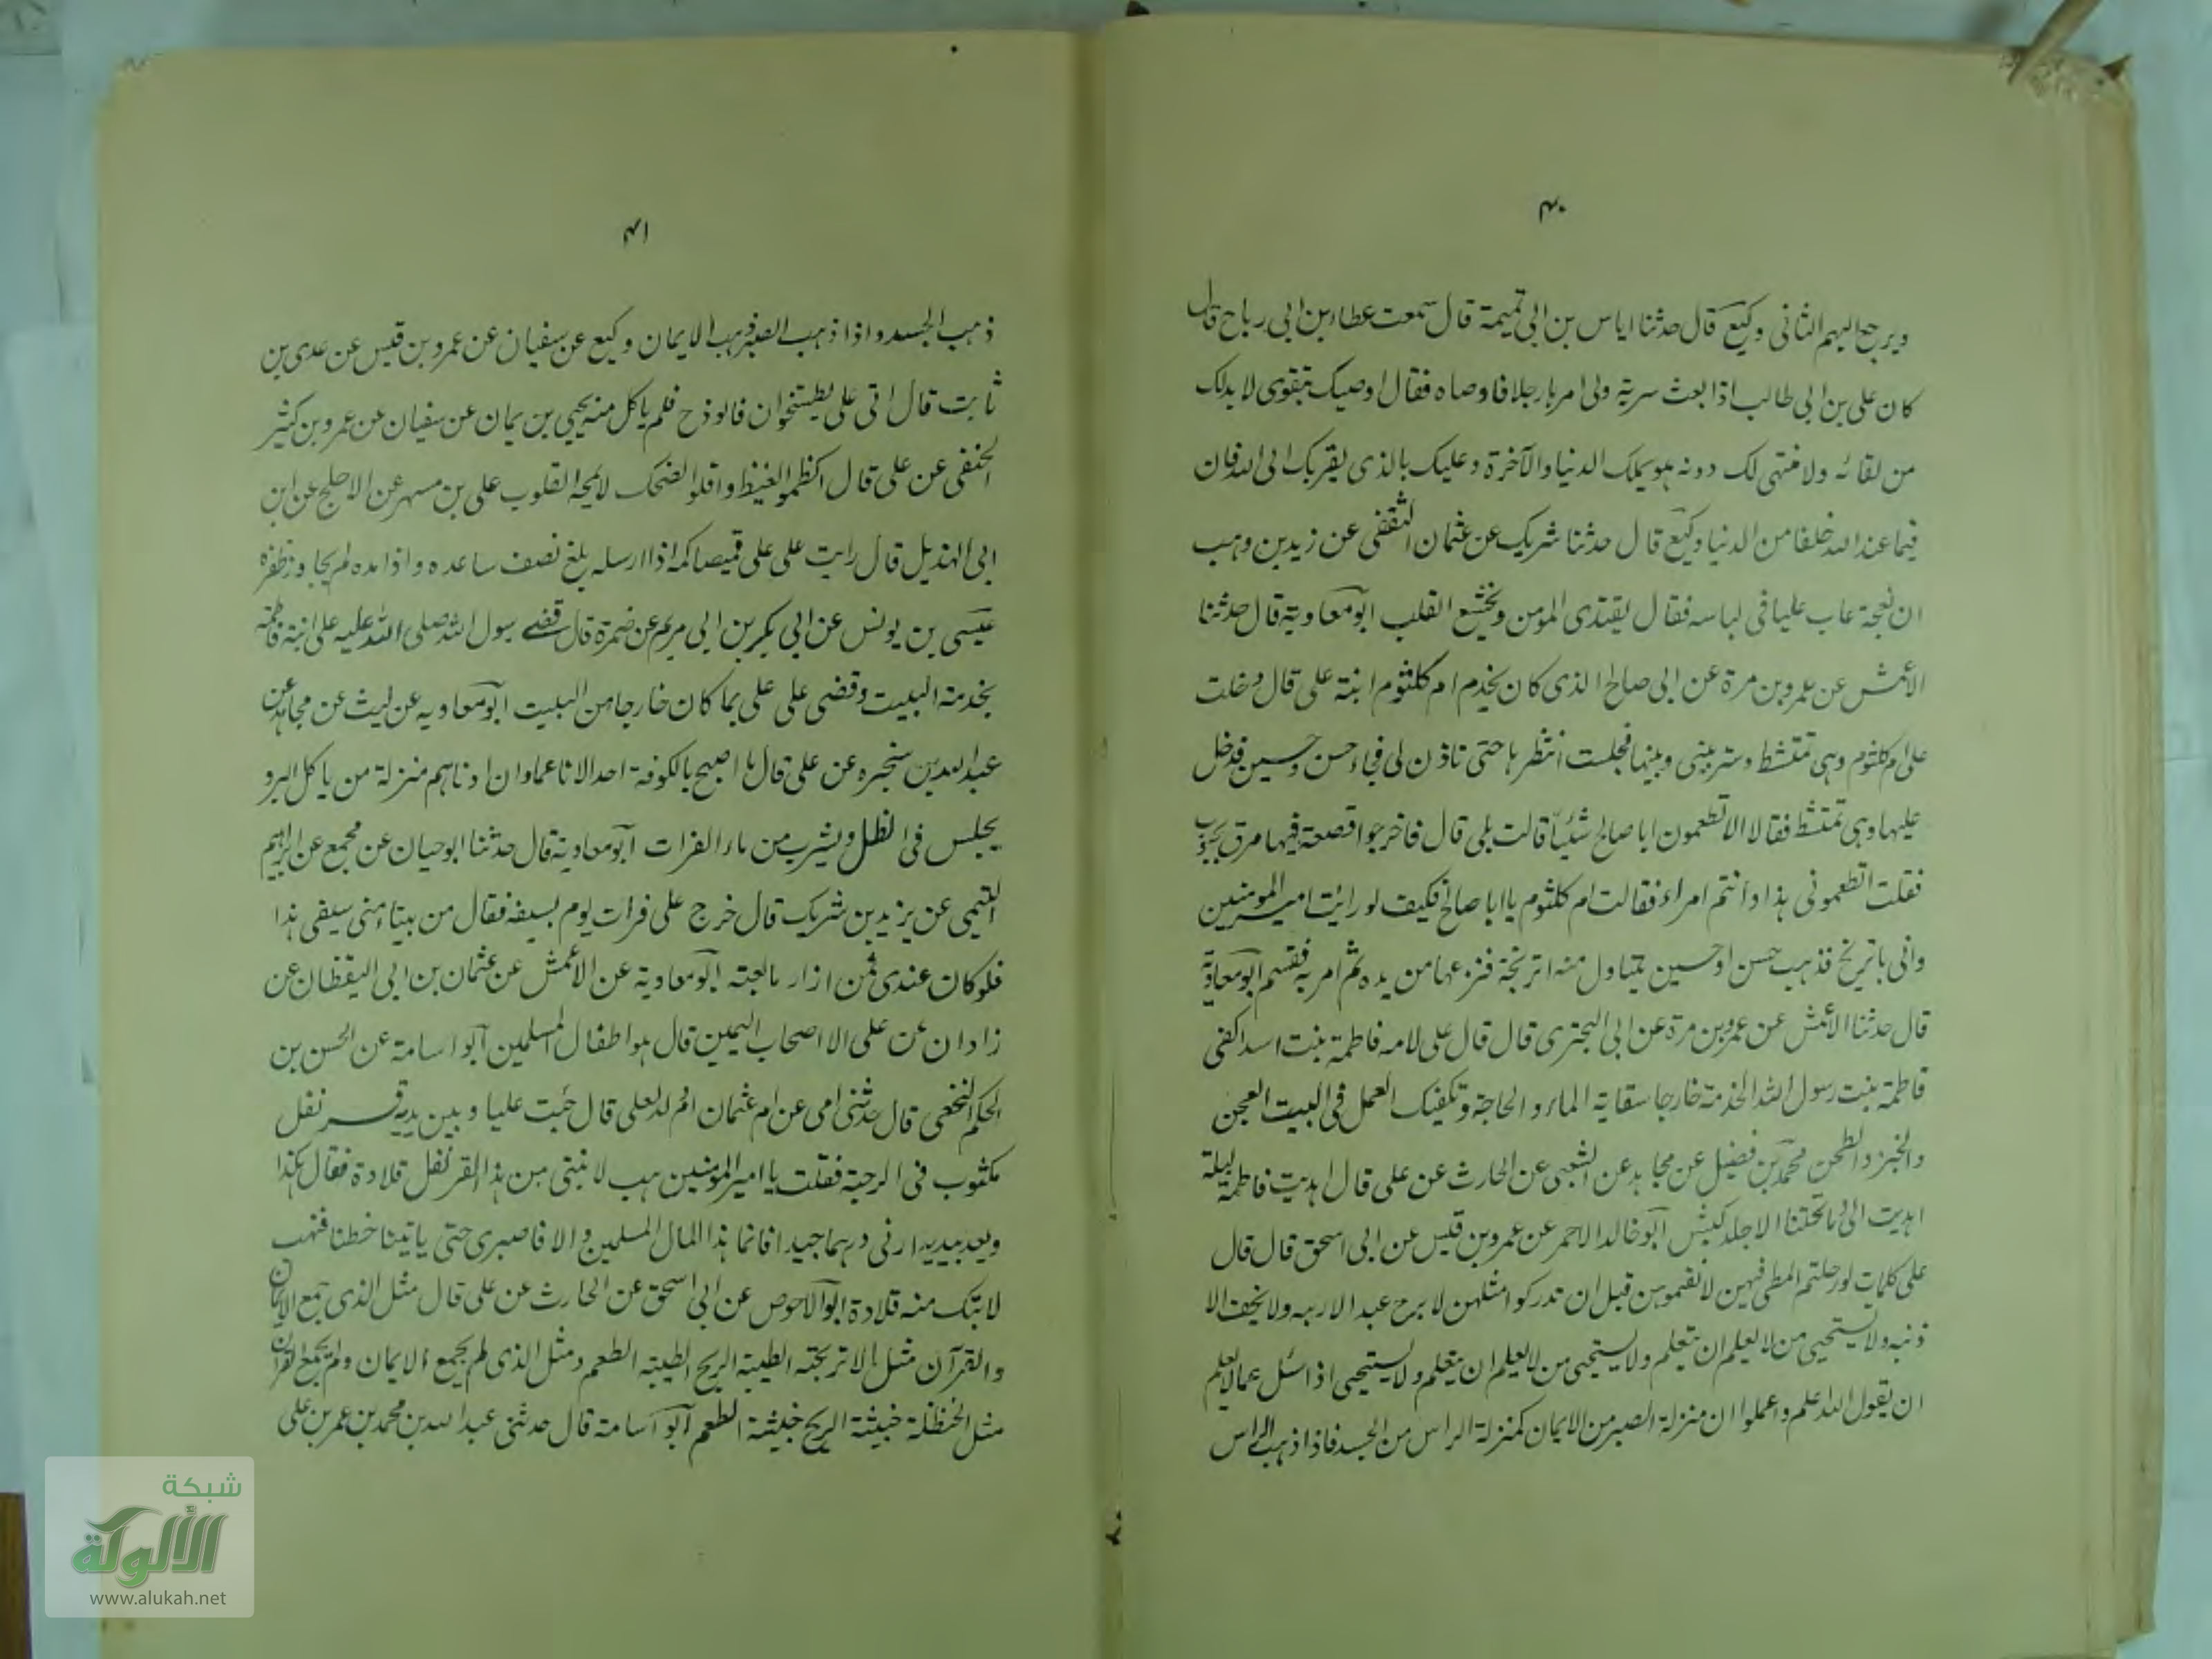 ٤٠
ويرجع اليهم الثانى وكيع قال حدثنا اياس بن ابى تميمة قال سمعت عطاء بن ابى رباح قال
كان على بن ابى طالب اذا بعث سرية ولى امرها رجلا فاوصاه فقال اوصيك بتقوى لا بد لك
من لقائه ولا منتهى لك دونه هو يملك الدنيا والآخرة وعليك بالذى يقربك الى الله فان
فيما عند الله خلفا من الدنيا وكيع قال حدثنا شريك عن عثمان الثقفى عن زيد بن وهب
ان نعجة عاب عليا فى لباسه فقال يقتدى المومن ويخشع القلب ابو معاوية قال حدثنا
الاعمش عن عمرو بن مرة عن ابى صالح الذى كان يخدم ام كلثوم ابنة على قال دخلت
على ام كلثوم وهى تمتشط وستر بينى وبينها فجلست انتظرها حتى تاذن لى فجاء حسن وحسين فدخل
عليها وهى تمتشط فقالا الا تطعمون ابا صالح شيئا قالت بلى قال فاخرجوا قصعة فيها مرق بحبوب
فقلت اتطعمونى هذا وانتم امراء فقالت ام كلثوم يا ابا صالح فكيف لو رائت امير المومنين
واتى باترنج فذهب حسن او حسين يتناول منه اترنجة فنزعها من يده ثم امر به فقسم ابو معاوية
قال حدثنا الاعمش عن عمرو بن مرة عن ابى البخترى قال قال على لامه فاطمة بنت اسد اكفى
فاطمة بنت رسول الله الخدمة خارجا سقاية الماء و الحاجة وتكفيك العمل فى البيت العجن
والخبز والطحن محمد بن فضيل عن مجاهد عن الشعبى عن الحارث عن على قال اهديت فاطمة ليلة
اهديت الى وما تحتنا الا جلد كبش ابو خالد الاحمر عن عمرو بن قيس عن ابى اسحق قال قال
على كلمات لو رحلتم المطى فيهن لانقيتموهن قبل ان تدركوا مثلهن لا يرج عبد الا ربه ولا يخف الا
ذنبه ولا يستحيى من لا يعلم ان يتعلم ولا يستحيى من لا يعلم ان يتعلم ولا يستحيى اذا سئل عما لا يعلم
ان يقول الله اعلم واعملوا ان منزلة الصبر من الايمان كمنزلة الراس من الجسد فاذا ذهب الراس
٤١
ذهب الجسد و اذا ذهب الصبر ذهب الايمان وكيع عن سفيان عن عمرو بن قيس عن عدى بن
ثابت قال اتى على بطيشتخوان فالوذج فلم ياكل منه يحيى بن يمان عن سفيان عن عمرو بن كثير
الحنفى عن على قال اكظموا الغيظ واقلوا الضحك لا تمجه القلوب على بن مسهر عن الاجلح عن ابن
ابى الهذيل قال رايت على على قميصا كمه اذا ارسله بلغ نصف ساعده واذا مده لم يجاوز ظفره
عيسى بن يونس عن ابى بكر بن ابى مريم عن ضمرة قال قضى رسول الله صلى الله عليه على ابنته فاطمة
بخدمة البيت وقضى على على بما كان خارجا من البيت ابو معاويه عن ليث عن مجاهد عن
عبد الله بن سخبره عن على قال ما اصبح بالكوفة احد الا ناعما وان ادناهم منزلة من ياكل البر و
يجلس فى الظل ويشرب من ماء الفرات ابو معاوية قال حدثنا ابو حيان عن مجمع عن ابراهيم
التيمى عن يزيد بن شريك قال خرج على فرات يوم بسيفه فقال من يبتاع منى سيفى هذا
فلو كان عندى ثمن ازار ما بعته ابو معاوية عن الاعمش عن عثمان بن ابى اليقظان عن
زادان عن على الا اصحاب اليمين قال هو اطفال المسلمين ابو اسامة عن الحسن بن
الحكم النخعى قال حدثنى امى عن ام عثمان ام ولد لعلى قال جئت عليا وبين يديه قرنفل
مكثوب فى الرحبة فقلت يا امير المومنين هب لابنتى من هذا القرنفل قلادة فقال هكذا
ويعد بيديه ارنى درهما جيدا فانما هذا المال المسلمين و الا فاصبرى حتى ياتينا خطنا فنهب
لابنتك منه قلادة ابو الاحوص عن ابى اسحق عن الحارث عن على قال مثل الذى جمع الايمان
والقرآن مثل الاترنجة الطيبة الريح الطيبة الطعم ومثل الذى لم يجمع الايمان ولم يجمع القرآن
مثل الحنظلة خبيثة الريح خبيثة الطعم ابو اسامة قال حدثنى عبد الله بن محمد بن عمر بن على
شبكة
الألوكة
www.alukah.net